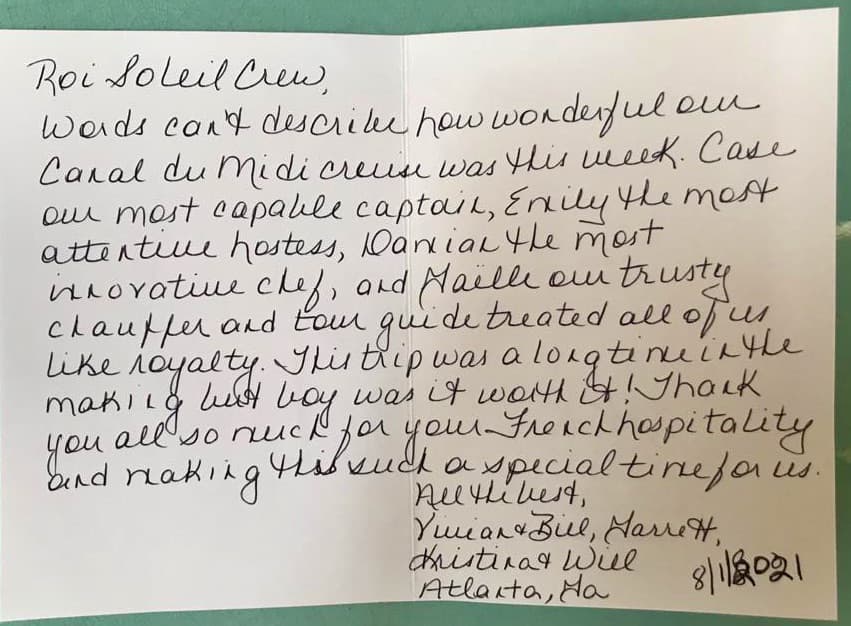 Roi Soleil Crew,
Words can't describe how wonderful our
Canal du Midi cruise was this week. Case
our most capable captain, Emily the most
attentive hostess, Damian the most
innovative chef, and Maëlle our trusty
chauffer and tour guide treated all of us
like royalty. This trip was a long time in the
making but boy was it worth it! Thank
you all so much for your French hospitality
and making this such a special time for us.
All the best,
Vivian & Bill, Garrett,
Kristina & Will
Atlanta, Ga
8/1/2021